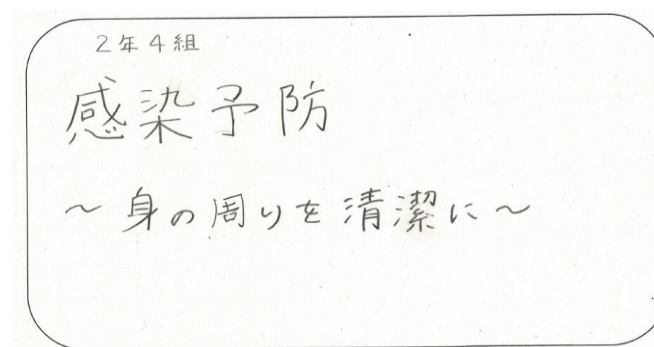 2年4組
感染予防
～身の周りを清潔に～